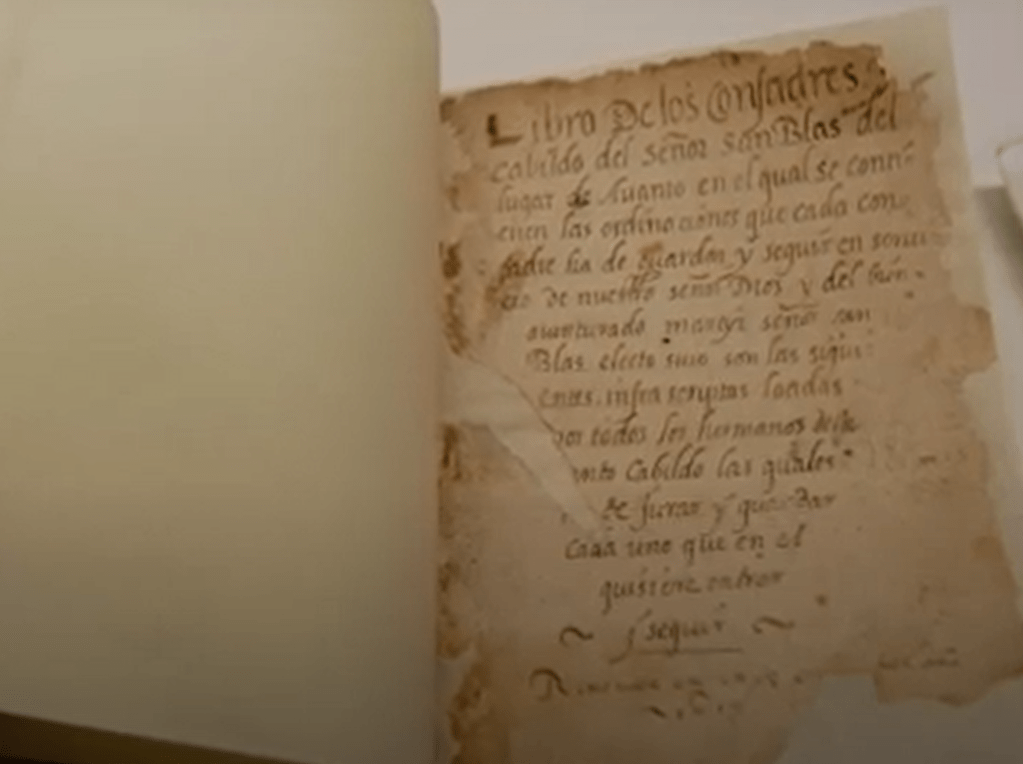 Libro De los Confadres
cabildo del señor san Blas del
lugar de Auanto en el qual se conti
enen las ordinaciones que cada con
fadre ha de guardar y seguir en serui
cio de nuestro señor Dios y del bien
auenturado martyr señor san
Blas electo suio son las sigui
entes. infra scriptas loadas
por todos los hermanos deste
Cabildo las quales
de jurar y guardar
Cada uno que en el
quisiere entrar
y seguir